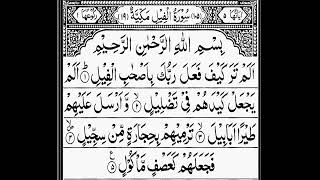 سُوْرَةُ الْفِيْلِ مَكِّيَّةٌ
بِسْمِ اللّٰهِ الرَّحْمٰنِ الرَّحِيْمِ
اَلَمْ تَرَ كَيْفَ فَعَلَ رَبُّكَ بِاَصْحٰبِ الْفِيْلِ ۝۱ اَلَمْ
يَجْعَلْ كَيْدَهُمْ فِيْ تَضْلِيْلٍ ۝۲ وَّاَرْسَلَ عَلَيْهِمْ
طَيْرًا اَبَابِيْلَ ۝۳ تَرْمِيْهِمْ بِحِجَارَةٍ مِّنْ سِجِّيْلٍ ۝۴
فَجَعَلَهُمْ كَعَصْفٍ مَّاْكُوْلٍ ۝۵